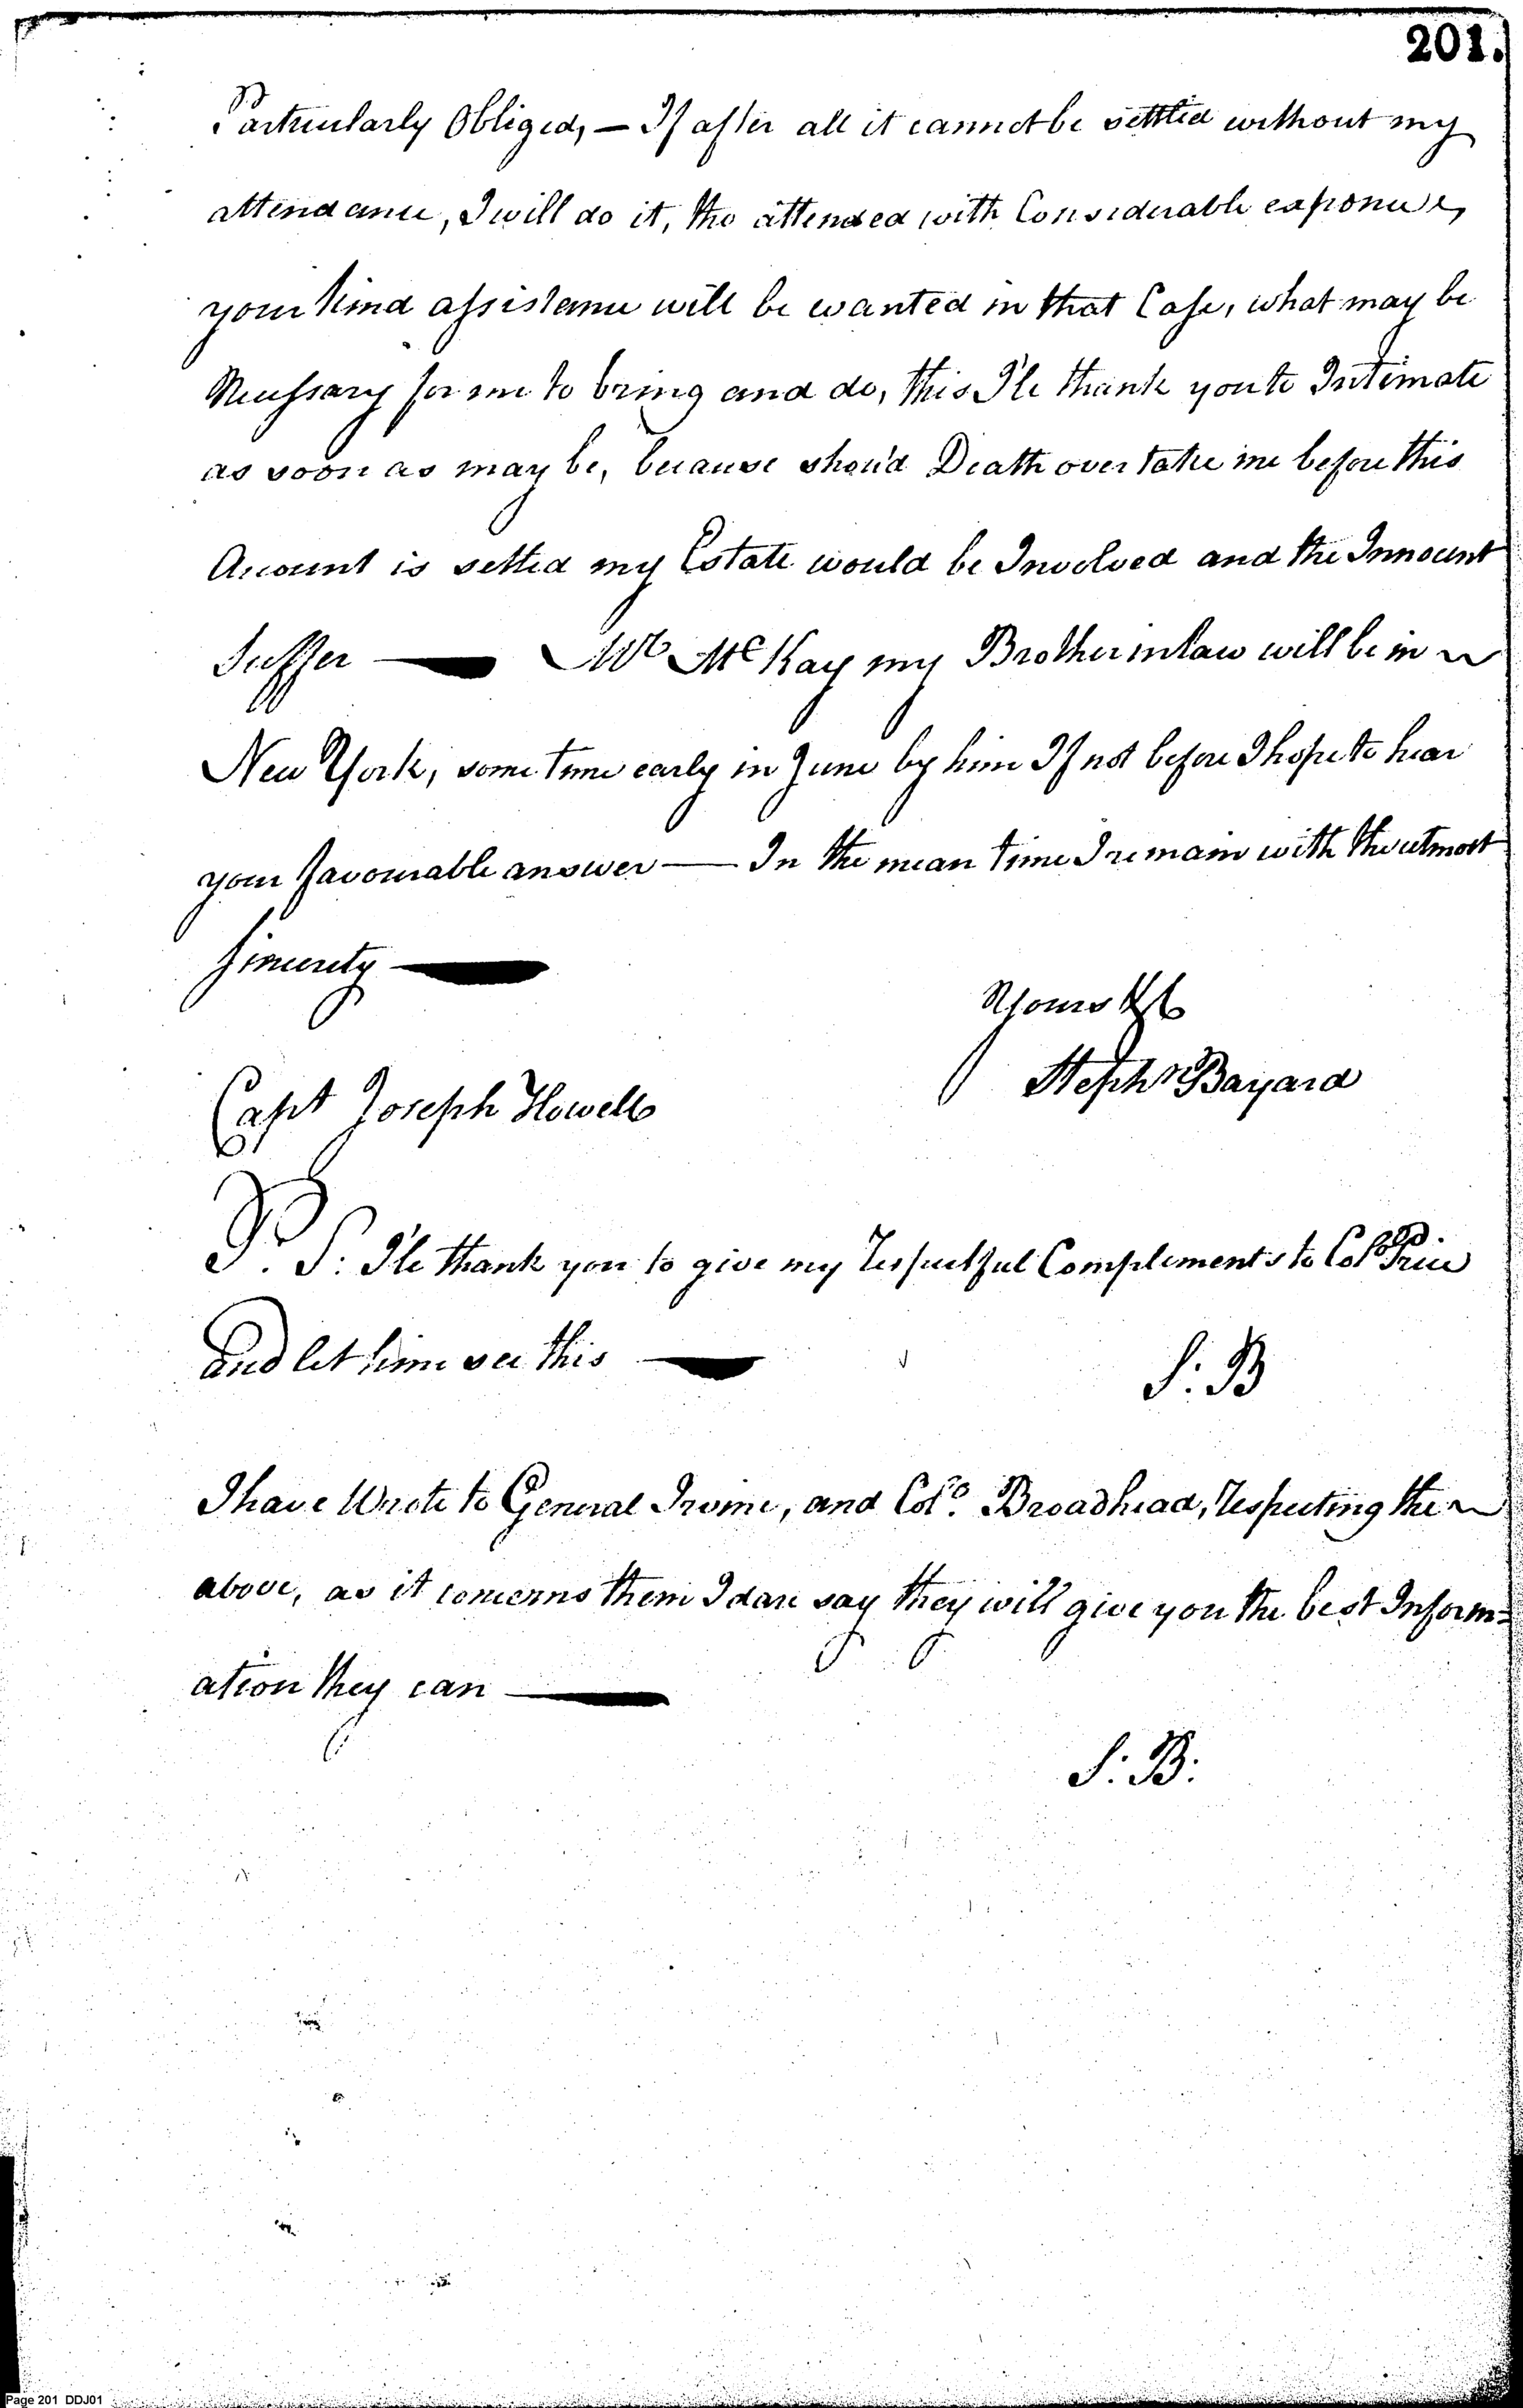 201.
Particularly Obliged, — If after all it cannot be settled without my
attendance, I will do it, tho attended with Considerable expence,
your kind assistance will be wanted in that Case, what may be
Necessary for me to bring and do, this I'le thank you to Intimate
as soon as may be, because shou'd Death over take me before this
Account is settled my Estate would be Involved and the Innocent
Suffer — Mr McKay my Brother in law will be in
New York, some time early in June by him If not before I hope to hear
your favourable answer — In the mean time I remain with the utmost
Sincerity —
Yours &c
Stephn Bayard
Capt Joseph Howell
P. S: I'le thank you to give my respectful Complements to Colo Price
and let him see this —
S: B
I have Wrote to General Irvine, and Colo. Broadhead, respecting the
above, as it concerns them I dare say they will give you the best Inform=
ation they can —
S: B:
Page 201 DDJ01